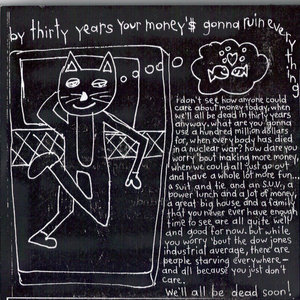 by thirty years your money's gonna ruin everything
i don't see how anyone could
care about money today, when
we'll all be dead in thirty years
anyway. what are you gonna
use a hundred million dollars
for, when every body has died
in a nuclear war? how dare you
worry 'bout making more money,
when we could all just go out
and have a whole lot more fun...
a suit and tie and an S.U.V., a
power lunch and a lot of money,
a great big house and a family
that you never ever have enough
time to see are all quite well
and good for now. but while
you worry 'bout the dow jones
industrial average, there are
people starving everywhere—
and all because you just don't
care.
We'll all be dead soon!